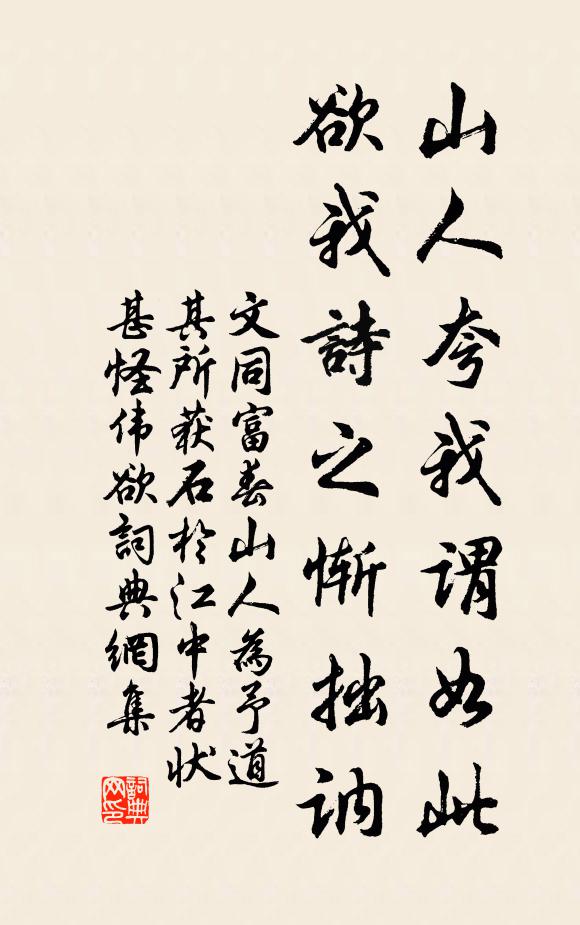 山人夸我謂如此
欲我詩之慚拙訥
文同富春山人為予道
其所获石於江中者状
甚怪伟欲詞典網集
詞典网印